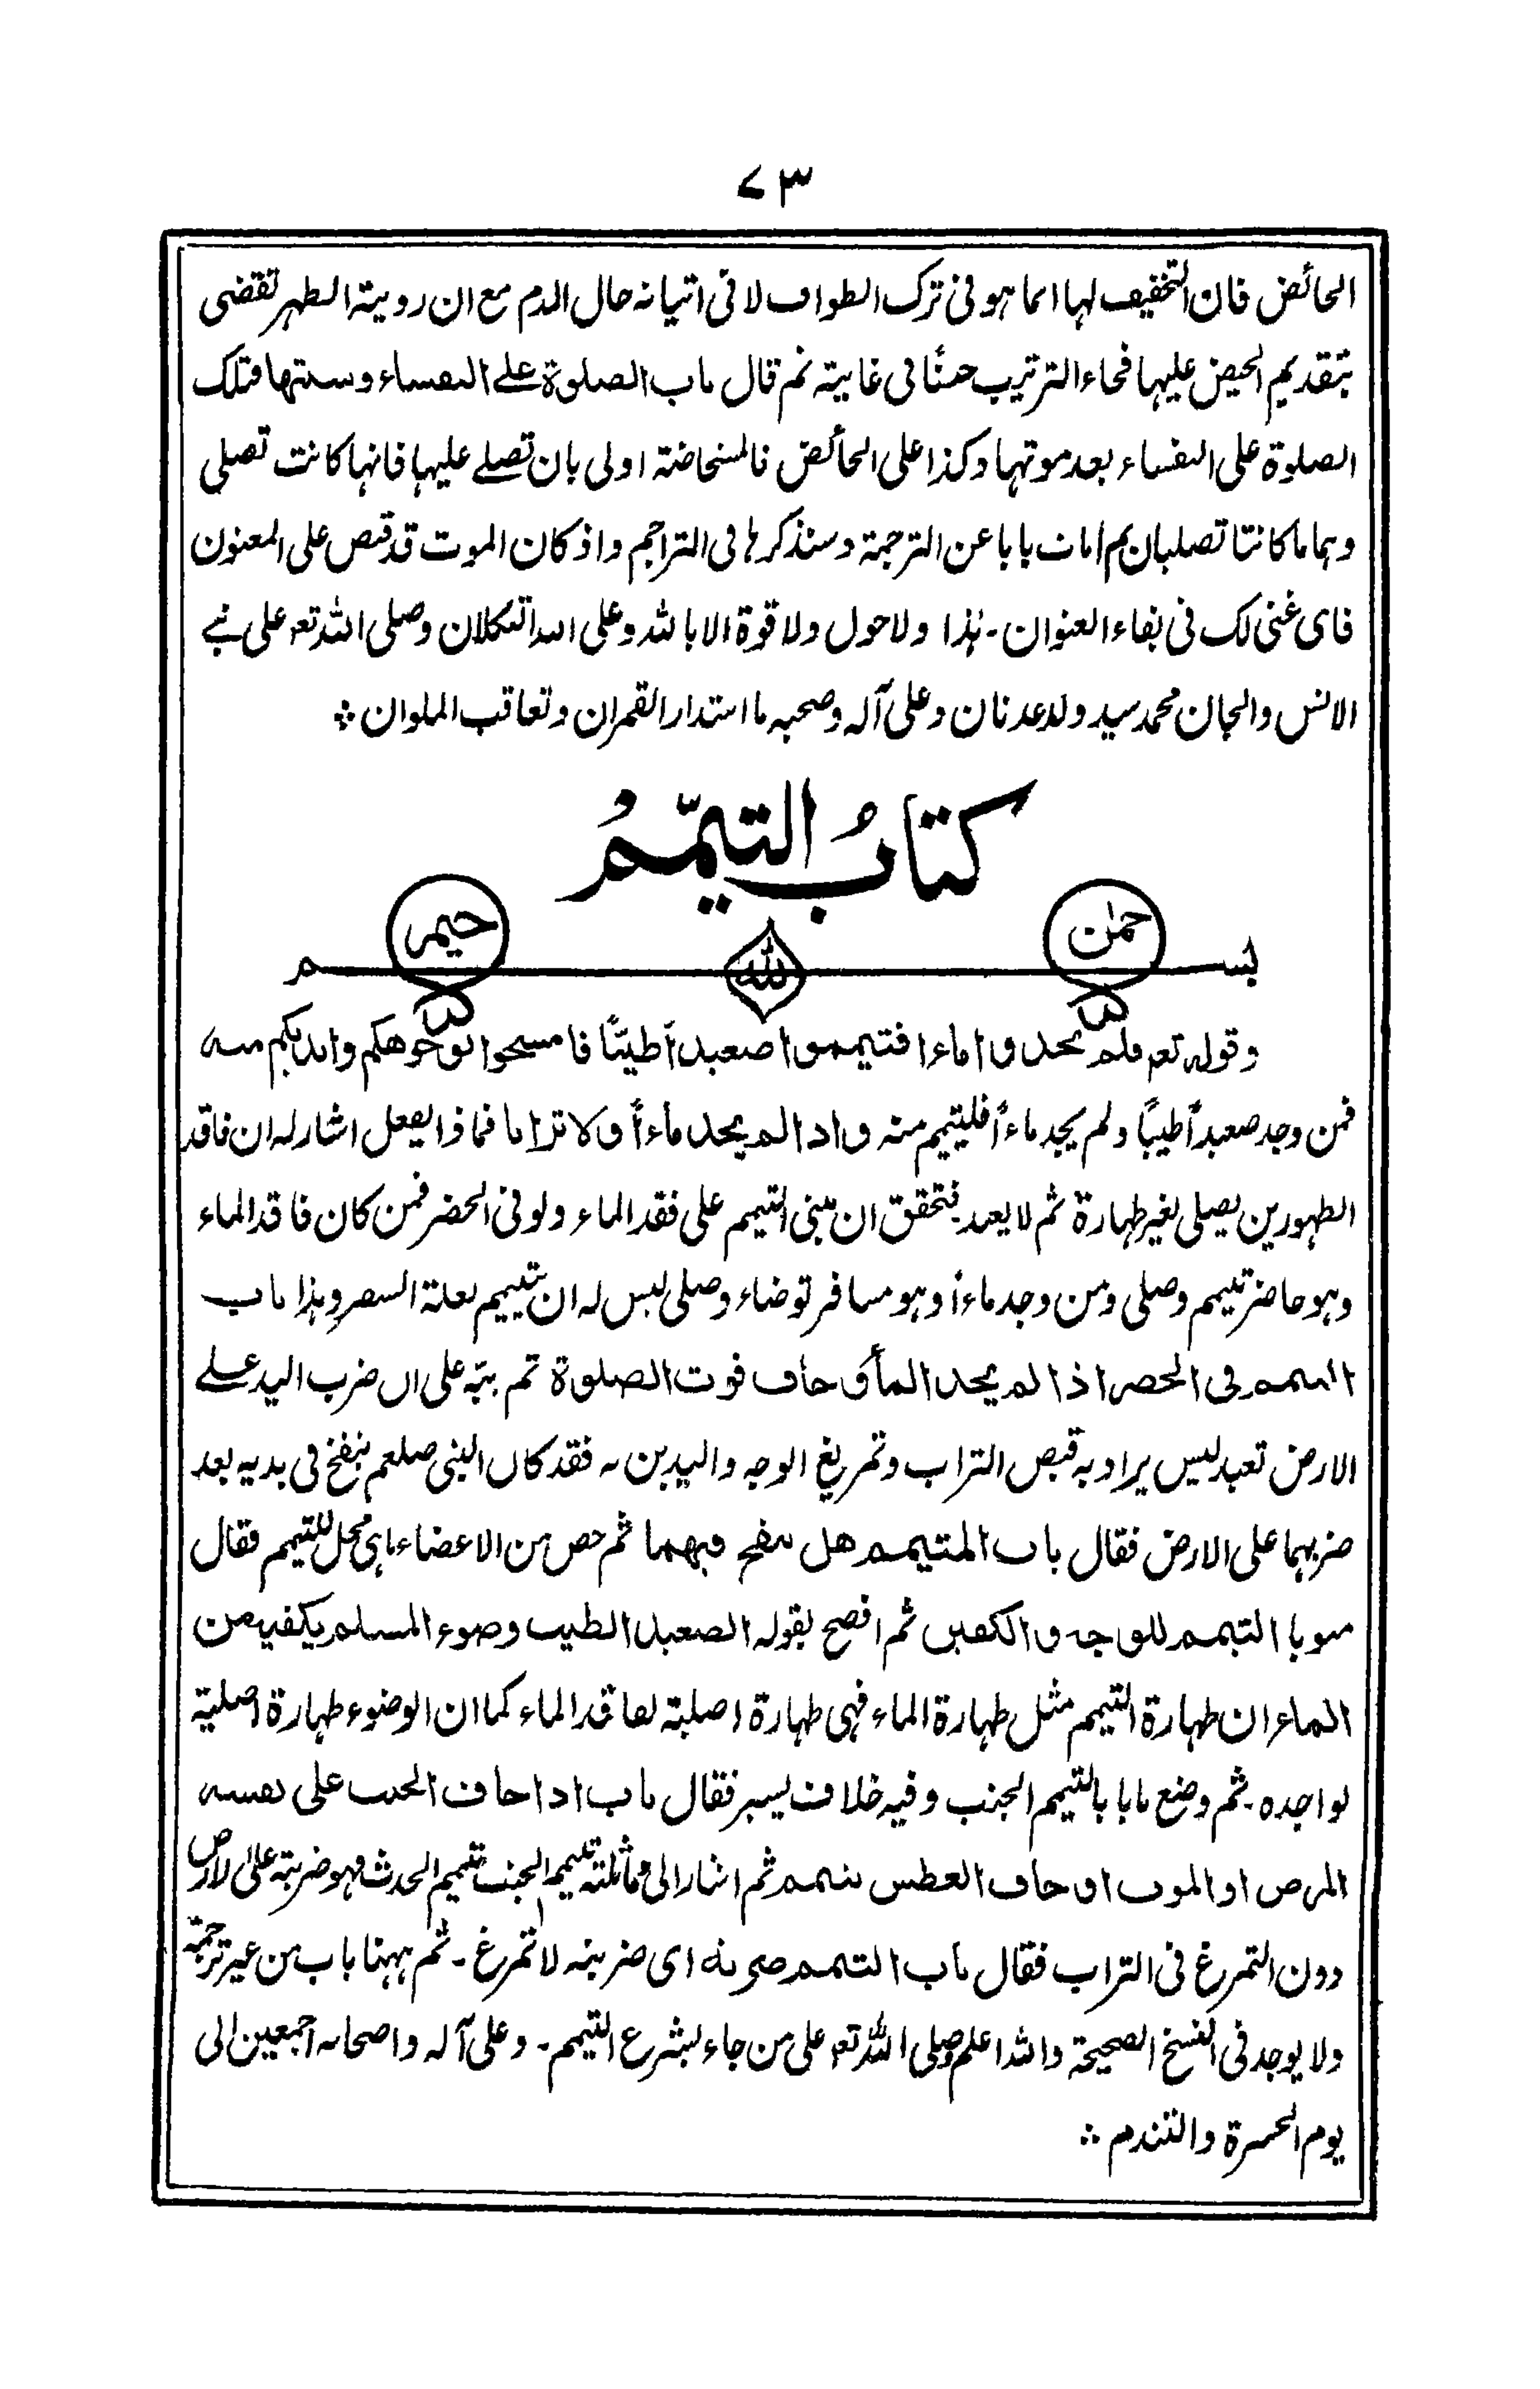 ۷۳
الحائض فان التخفيف لها انما هو فى ترك الطواف لا فى اتيانه حال الدم مع ان روية الطهر تقضى
بتقديم الحيض عليها فجاء الترتيب حسنًا فى غاية ثم قال باب الصلوة على النفساء وسنتها فتلك
الصلوة على النفساء بعد موتها وكذا على الحائض فالمستحاضة اولى بان تصلے عليها فانها كانت تصلى
وهما ما كانتا تصليان ثم امات بابا عن الترجمة وسنذكرها فى التراجم واذ كان الموت قد قبض على المعنون
فاى غنى لك فى بقاء العنوان - هٰذا ولا حول ولا قوة الا بالله وعلى الله التكلان وصلى الله تعم على نبے
الانس والجان محمد سيد ولد عدنان وعلى آله وصحبه ما استدار القمران وتعاقب الملوان ؞
كتابُ التيمّمُ
بسم الله الرحمٰن الرحيم
وقوله تعم فلم تجدوا ماء فتيمموا صعيدًا طيبًا فامسحوا بوجوهكم وايديكم منه
فمن وجد صعيدًا طيبًا ولم يجد ماءً فليتيمم منه واذا لم يجد ماءً ولا ترابا فماذا يفعل اشار له ان فاقد
الطهورين يصلى بغير طهارة ثم لا يعيد فتحقق ان مبنى التيمم على فقد الماء ولو فى الحضر فمن كان فاقد الماء
وهو حاضر تيمم وصلى ومن وجد ماءً وهو مسافر توضاء وصلى ليس له ان يتيمم لعلة السفر وهذا باب
التيمم فى الحضر اذا لم يجد الماء وخاف فوت الصلوة ثم نبّه على ان ضرب اليد علے
الارض تعبد ليس يراد به قبض التراب وتمريغ الوجه واليدين به فقد كان النبى صلعم ينفخ فى يديه بعد
ضربهما على الارض فقال باب المتيمم هل ينفخ فيهما ثم خص من الاعضاء ما هى محل للتيمم فقال
مبوبا التيمم للوجه والكفين ثم افصح بقوله الصعيد الطيب وضوء المسلم يكفيه من
الماء ان طهارة التيمم مثل طهارة الماء فهى طهارة اصلية لفاقد الماء كما ان الوضوء طهارة اصلية
لواجده - ثم وضع بابا بالتيمم الجنب وفيه خلاف يسير فقال باب اذا خاف الجنب على نفسه
المرض او الموت او خاف العطس تيمم ثم اشار الى مماثلته تيمم الجنب تيمم الحدث فهو ضربة على الارض
دون التمرغ فى التراب فقال باب التيمم ضربة اى ضربة لا تمرغ - ثم ههنا باب من غير ترجمة
ولا يوجد فى النسخ الصحيحة والله اعلم وصلى الله تعم على من جاء بشرع التيمم - وعلى آله واصحابه اجمعين الى
يوم الحسرة والتندم ؞